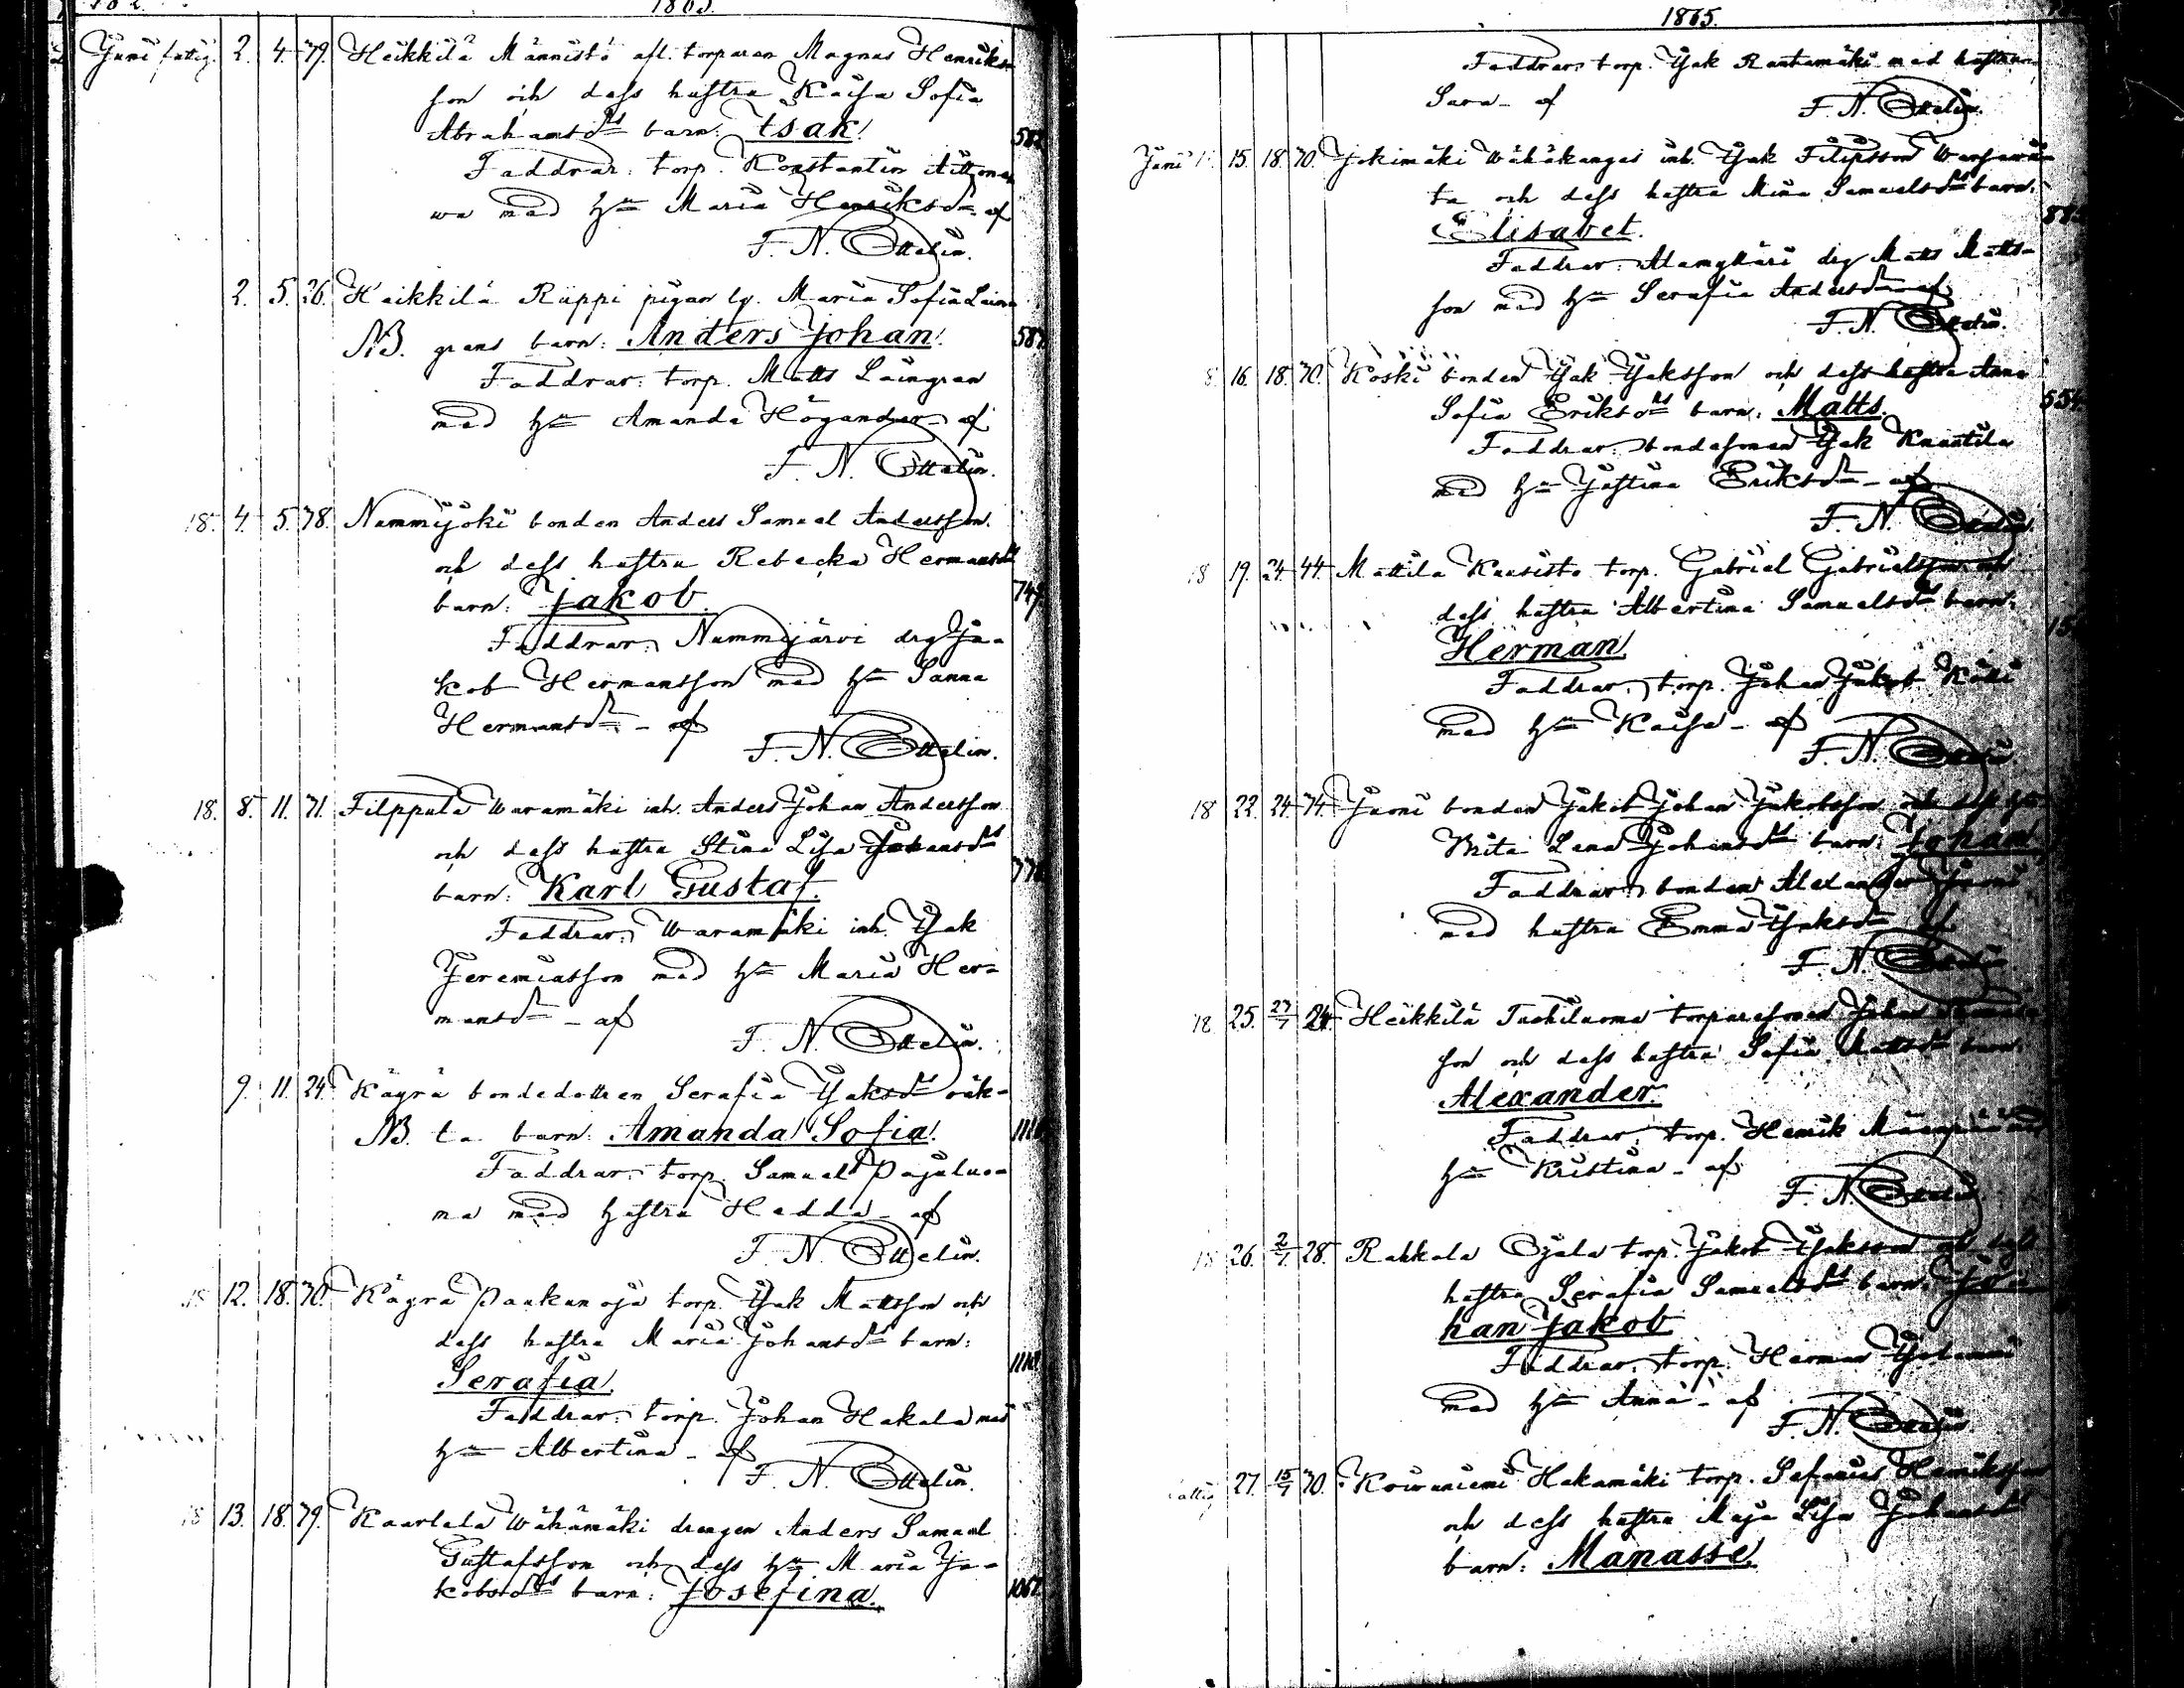 1865.
Juni fatig. 2. 4. 79. Heikkilä Männistö afl. torparen Magnus Henriks
son och dess hustru Kaisa Sofia
Abrahamsdrs barn: Isak.
582
Faddrar: torp. Konstantin
wa med hn Maria Henriksdr. af
F. N. Ottelin.
2. 5. 26. Heikkilä Rüppi pigan lg. Maria Sofia Lain
NB. grens barn: Anders Johan.
587
Faddrar: torp. Matts Laingren
med hn Amanda Högander - af
F. N. Ottelin.
18. 4. 5. 78. Nummijoki bonden Anders Samuel Andersson
och dess hustru Rebecka Hermansdrs
barn: Jakob.
749
Faddrar: Nummijärvi drg Ja-
kob Hermansson med hn Sanna
Hermansdr. - af
F. N. Ottelin.
18. 8. 11. 71. Filppula Waramäki inh. Anders Johan Andersson
och dess hustru Stina Lisa Johansdrs
barn: Karl Gustaf.
Faddrar: Waramäki inh. Isak
Jeremiasson med hn Maria Her-
mansdr - af
F. N. Ottelin.
9. 11. 24. Käyrä bondedottren Serafia Isaksdrs oäk-
NB. ta barn: Amanda Sofia.
Faddrar: torp. Samuel Pajuluo-
ma med hustru Hedda - af
F. N. Ottelin.
18 12. 18. 70. Käyrä Paukunoja torp. Isak Mattsson och
dess hustru Maria Johansdrs barn:
Serafia.
Faddrar: torp. Johan Hakala med
hn Albertina - af
F. N. Ottelin.
18 13. 18. 79. Kaarlela Wähämäki drengen Anders Samuel
Gustafsson och dess hn Maria Ja-
kobsdrs barn: Josefina.
1067
1865.
Faddrar: torp. Isak Rautamäki med hustrun
Sara - af F. N. Ottelin.
Juni 15. 18. 70. Jokimäki Wähäkangas inh. Isak Filipsson
ta och dess hustru Mina Samuelsdrs barn:
Elisabet.
Faddrar: drg Matts Matts-
son med hn Serafia Andersdr - af
F. N. Ottelin.
16. 18. 70. Koski bonden Isak Isaksson och dess hustru Anna
Sofia Eriksdrs barn: Matts.
Faddrar: bondesonen Isak Knuutila
med hn Justina Eriksdr - af
F. N. Ottelin.
18 19. 24. 44. Mattila Kuusisto torp. Gabriel Gabrielsson och
dess hustru Albertina Samuelsdrs barn:
Herman.
Faddrar: torp. Johan Jakob
med hn Kaisa - af
F. N. Ottelin.
18 22. 24. 74. Juoni bonden Jakob Johan Jakobsson och dess hn
Brita Lena Johansdrs barn: Johan.
Faddrar: bonden Alexander Juoni
med hustru Emma Isaksdr af
F. N. Ottelin.
18 25. 27/7 24. Heikkilä Tuohiluoma torparesonen Johan
son och dess hustru Sofia Mattsdrs barn:
Alexander.
Faddrar: torp. Henrik
hn Kristina - af
F. N. Ottelin.
18 26. 2/7 28. Rahkala Ojala torp. Jakob Isaksson och dess
hustru Serafia Samuelsdrs barn: Jo-
han Jakob
Faddrar: torp. Herman
med hn Anna - af
F. N. Ottelin.
27. 15/7 70. Koivuniemi Hakamäki torp. Sefanias Henriksson
och dess hustru Maja Lisa Johansdrs
barn: Manasse.